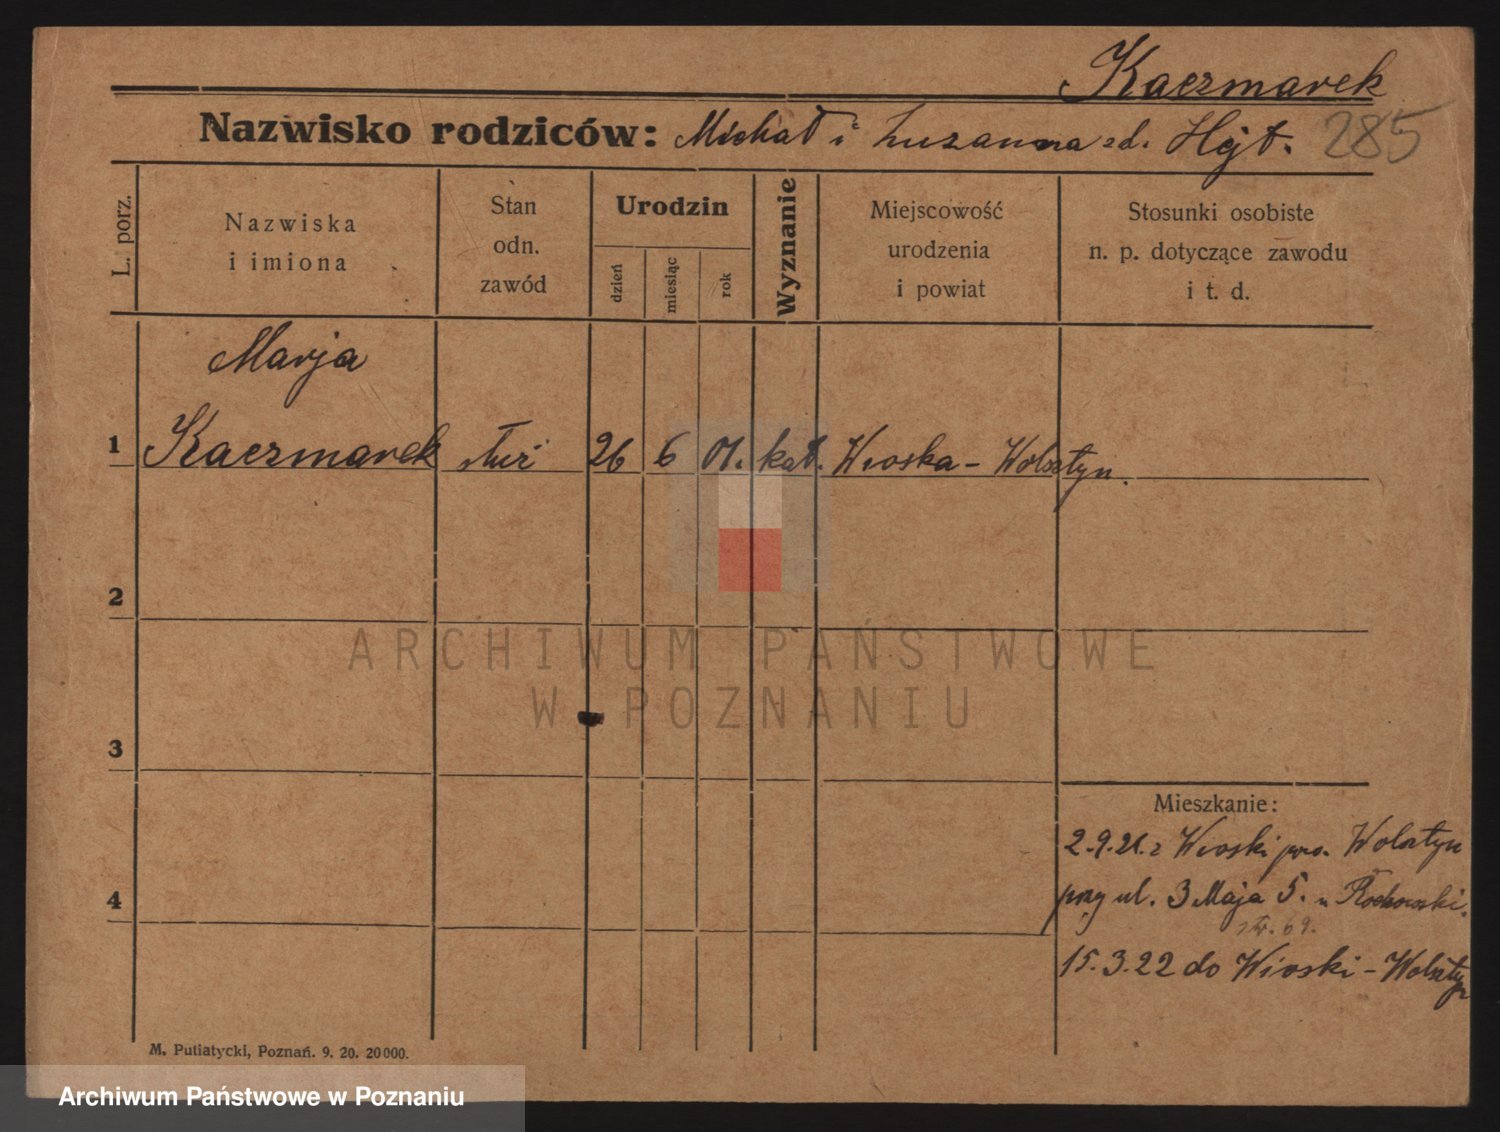 Kaczmarek
Nazwisko rodziców: Michał i Zuzanna zd. Hejt. 285
L. porz.
Nazwiska
i imiona
Stan
odn.
zawód
Urodzin
dzień
miesiąc
rok
Wyznanie
Miejscowość
urodzenia
i powiat
Stosunki osobiste
n. p. dotyczące zawodu
i t. d.
Marja
1 Kaczmarek służ 26 6 01. kat. Wioska - Wolsztyn.
2
3
4
Mieszkanie:
2.9.21. z Wioski pow. Wolsztyn
przy ul. 3 Maja 5. u Rochowski.
str. 69.
15.3.22 do Wioski - Wolsztyn
M. Putiatycki, Poznań. 9. 20. 20000.
ARCHIWUM PAŃSTWOWE
W POZNANIU
Archiwum Państwowe w Poznaniu